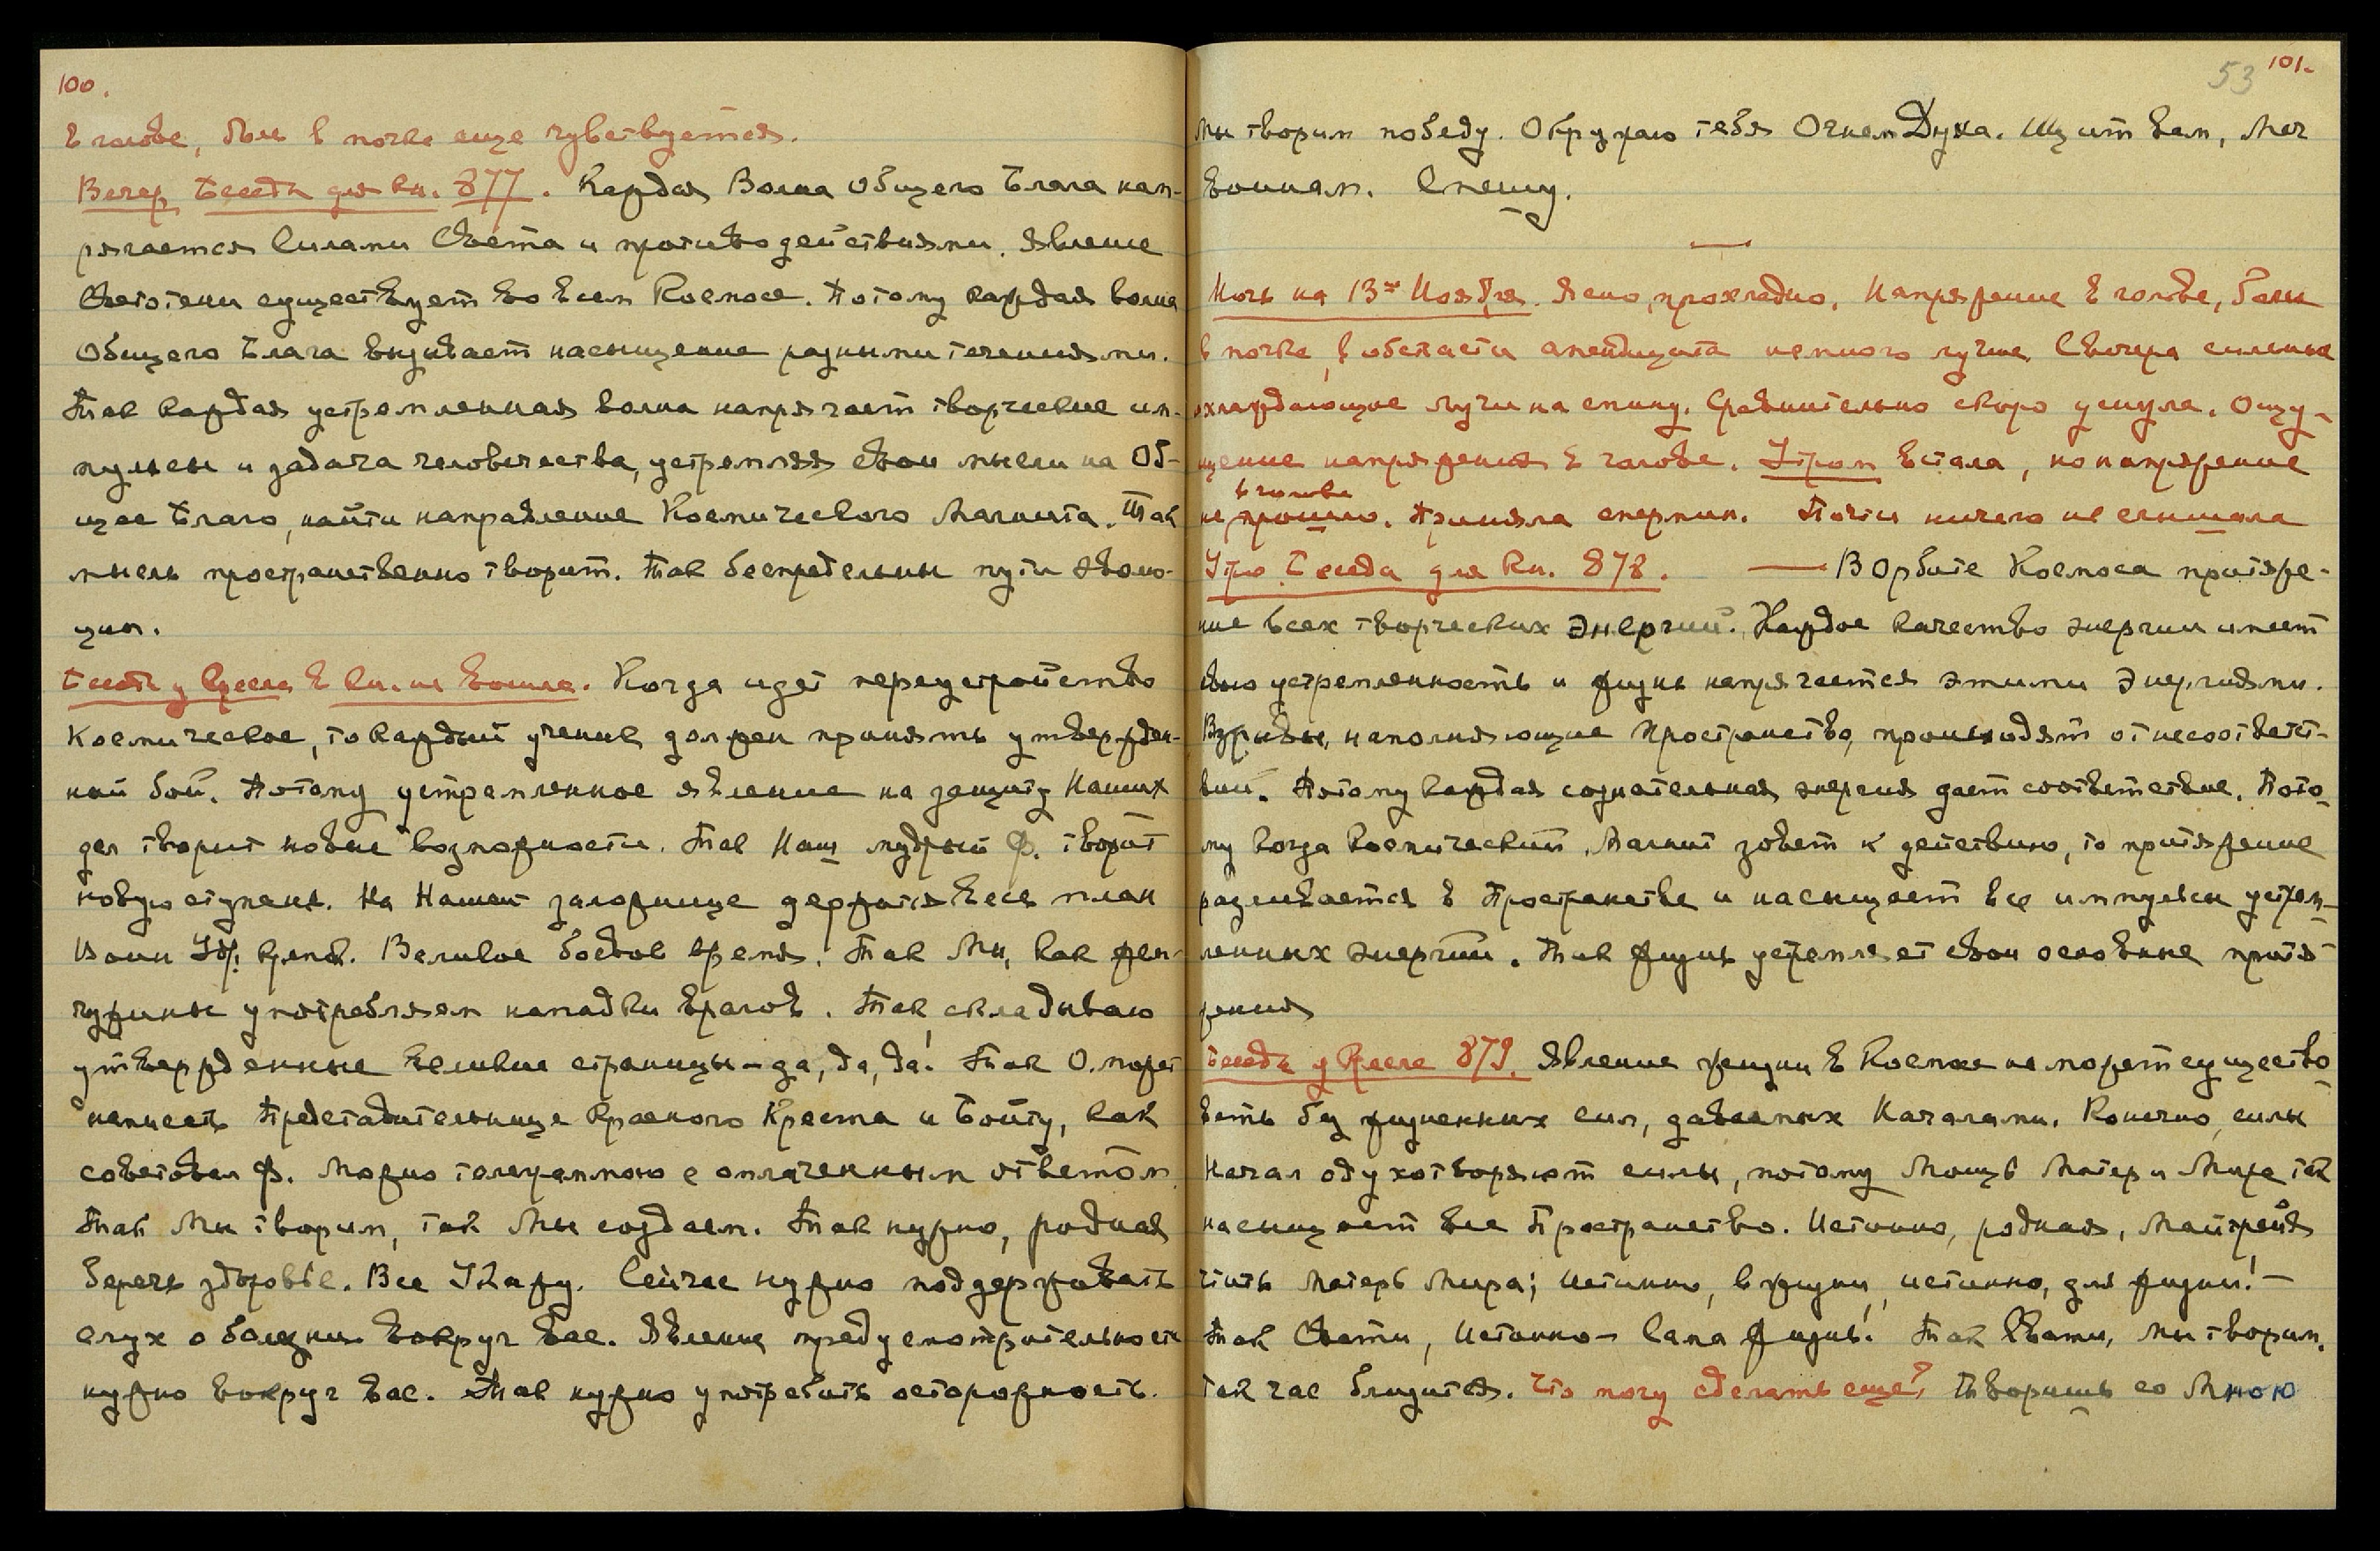 100.
в голове, боль в почке еще чувствуется.
Вечер Беседа для Кн. 877. Каждая Волна Общего Блага нап-
рягается Силами Света и противодействиями. Явление
Светотени существует во всем Космосе. Потому каждая волна
Общего Блага вызывает насыщение разными течениями.
Так каждая устремленная волна напрягает творческие им-
пульсы и задача человечества, устремляя свои мысли на Об-
щее Благо, найти направление Космического Магнита. Так
мысль пространственно творит. Так беспредельны пути эволю-
ции.
Беседа у Кресла в Кн. не вошла. Когда идет переустройство
Космическое, то каждый ученик должен принять утвержден-
ный бой. Потому устремленное явление на защиту Наших
дел творит новые возможности. Так Наш мудрый Ф. творит
новую ступень. На Нашем заложнице держится весь план
Великое боевое время. Так Мы, как жем-
чужины употребляем нападки врагов. Так складываю
утвержденные великие страницы – да, да, да! Так О. может
написать Представительнице Красного Креста и Бойту, как
советовал Ф. Можно телеграммою с оплаченным ответом.
Так Мы творим, так Мы создаем. Так нужно, родная
беречь здоровье. Все Укажу. Сейчас нужно поддерживать
слух о болезни вокруг вас. Явление предусмотрительности
нужно вокруг вас. Так нужно употребить осторожность.
53 101.
Мы творим победу. Окружаю тебя Огнем Духа. Щит вам, Меч
воинам. Спешу.
—
Ночь на 13ое Ноября. Ясно, прохладно. Напряжение в голове, боли
в почке, в области апендицита немного лучше. Свечера сильные
охлаждающие лучи на спину. Сравнительно скоро уснула. Ощу-
щение напряжения в голове. Утром встала, но напряжение
в голове
не прошло. Приняла спермин. Почти ничего не слышала
Утро. Беседа для Кн. 878. — В Орбите Космоса притяже-
ние всех творческих Энергий. Каждое качество энергии имеет
свою устремленность и жизнь напрягается этими Энергиями.
Взрывы, наполняющие Пространство, происходят от несоответст-
вий. Потому каждая сознательная энергия дает соответствие. Пото-
му когда Космический Магнит зовет к действию, то притяжение
разливается в Пространстве и насыщает все импульсы устрем-
ленных энергий. Так жизнь устремляет свои основные притя-
жения
Беседа у Кресла 879. Явление жизни в Космосе не может существо-
вать без жизненных сил, даваемых Началами. Конечно, силы
Начал одухотворяют силы, потому Мощь Матери Мира так
насыщает все Пространство. Истинно, родная, Майтрейя
чтить Матерь Мира; истинно, в жизни, истинно, для жизни! –
Так Свати, истинно – сама жизнь! Так Свати, мы творим,
так час близится. Что могу сделать еще? Творишь со Мною